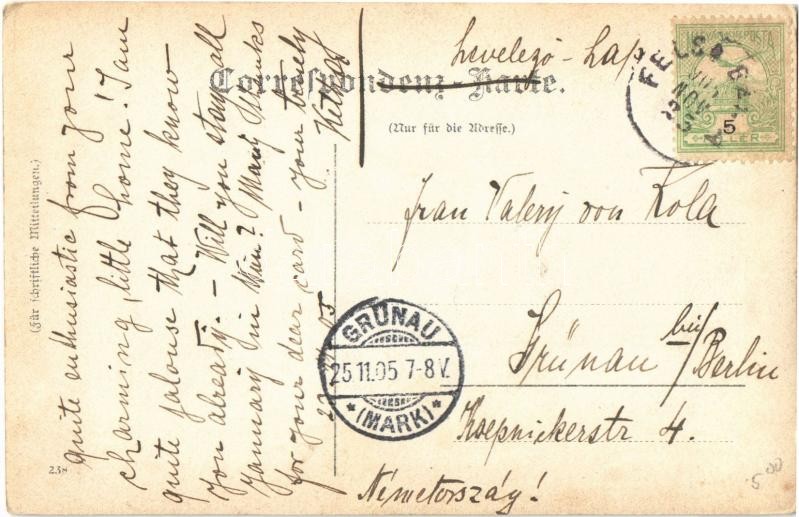 Correspondenz-Karte.
levelező-lap
(Nur für die Adresse.)
(Für schriftliche Mitteilungen.)
quite enthusiastic from your
charming little home! I am
quite jalouse that they know
you already. - Will you stay all
January in Wien? Many thanks
for your dear card - your
5
Frau Valery von Kola
Grünau bei/Berlin
Koepnickerstr 4.
Németország!
GRÜNAU
25.11.05 7-8 V.
*(MARK)*
238
500